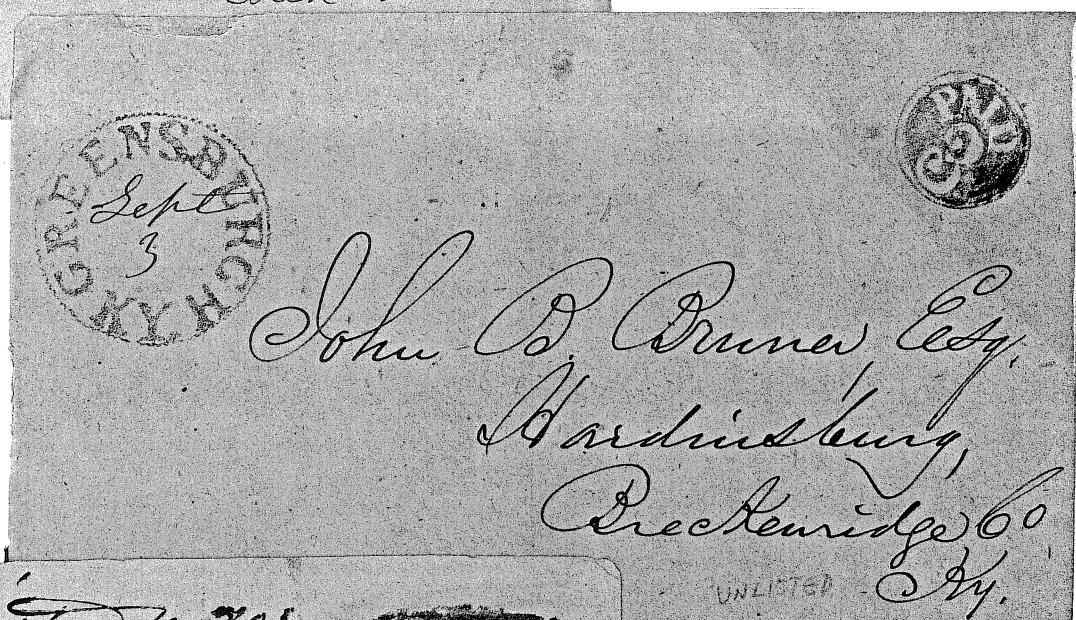 GREENSBURGH KY
Sept
3
PAID
3
John B. Bruner, Esq.
Hardinsburg,
Breckenridge Co
Ky.
UNLISTED